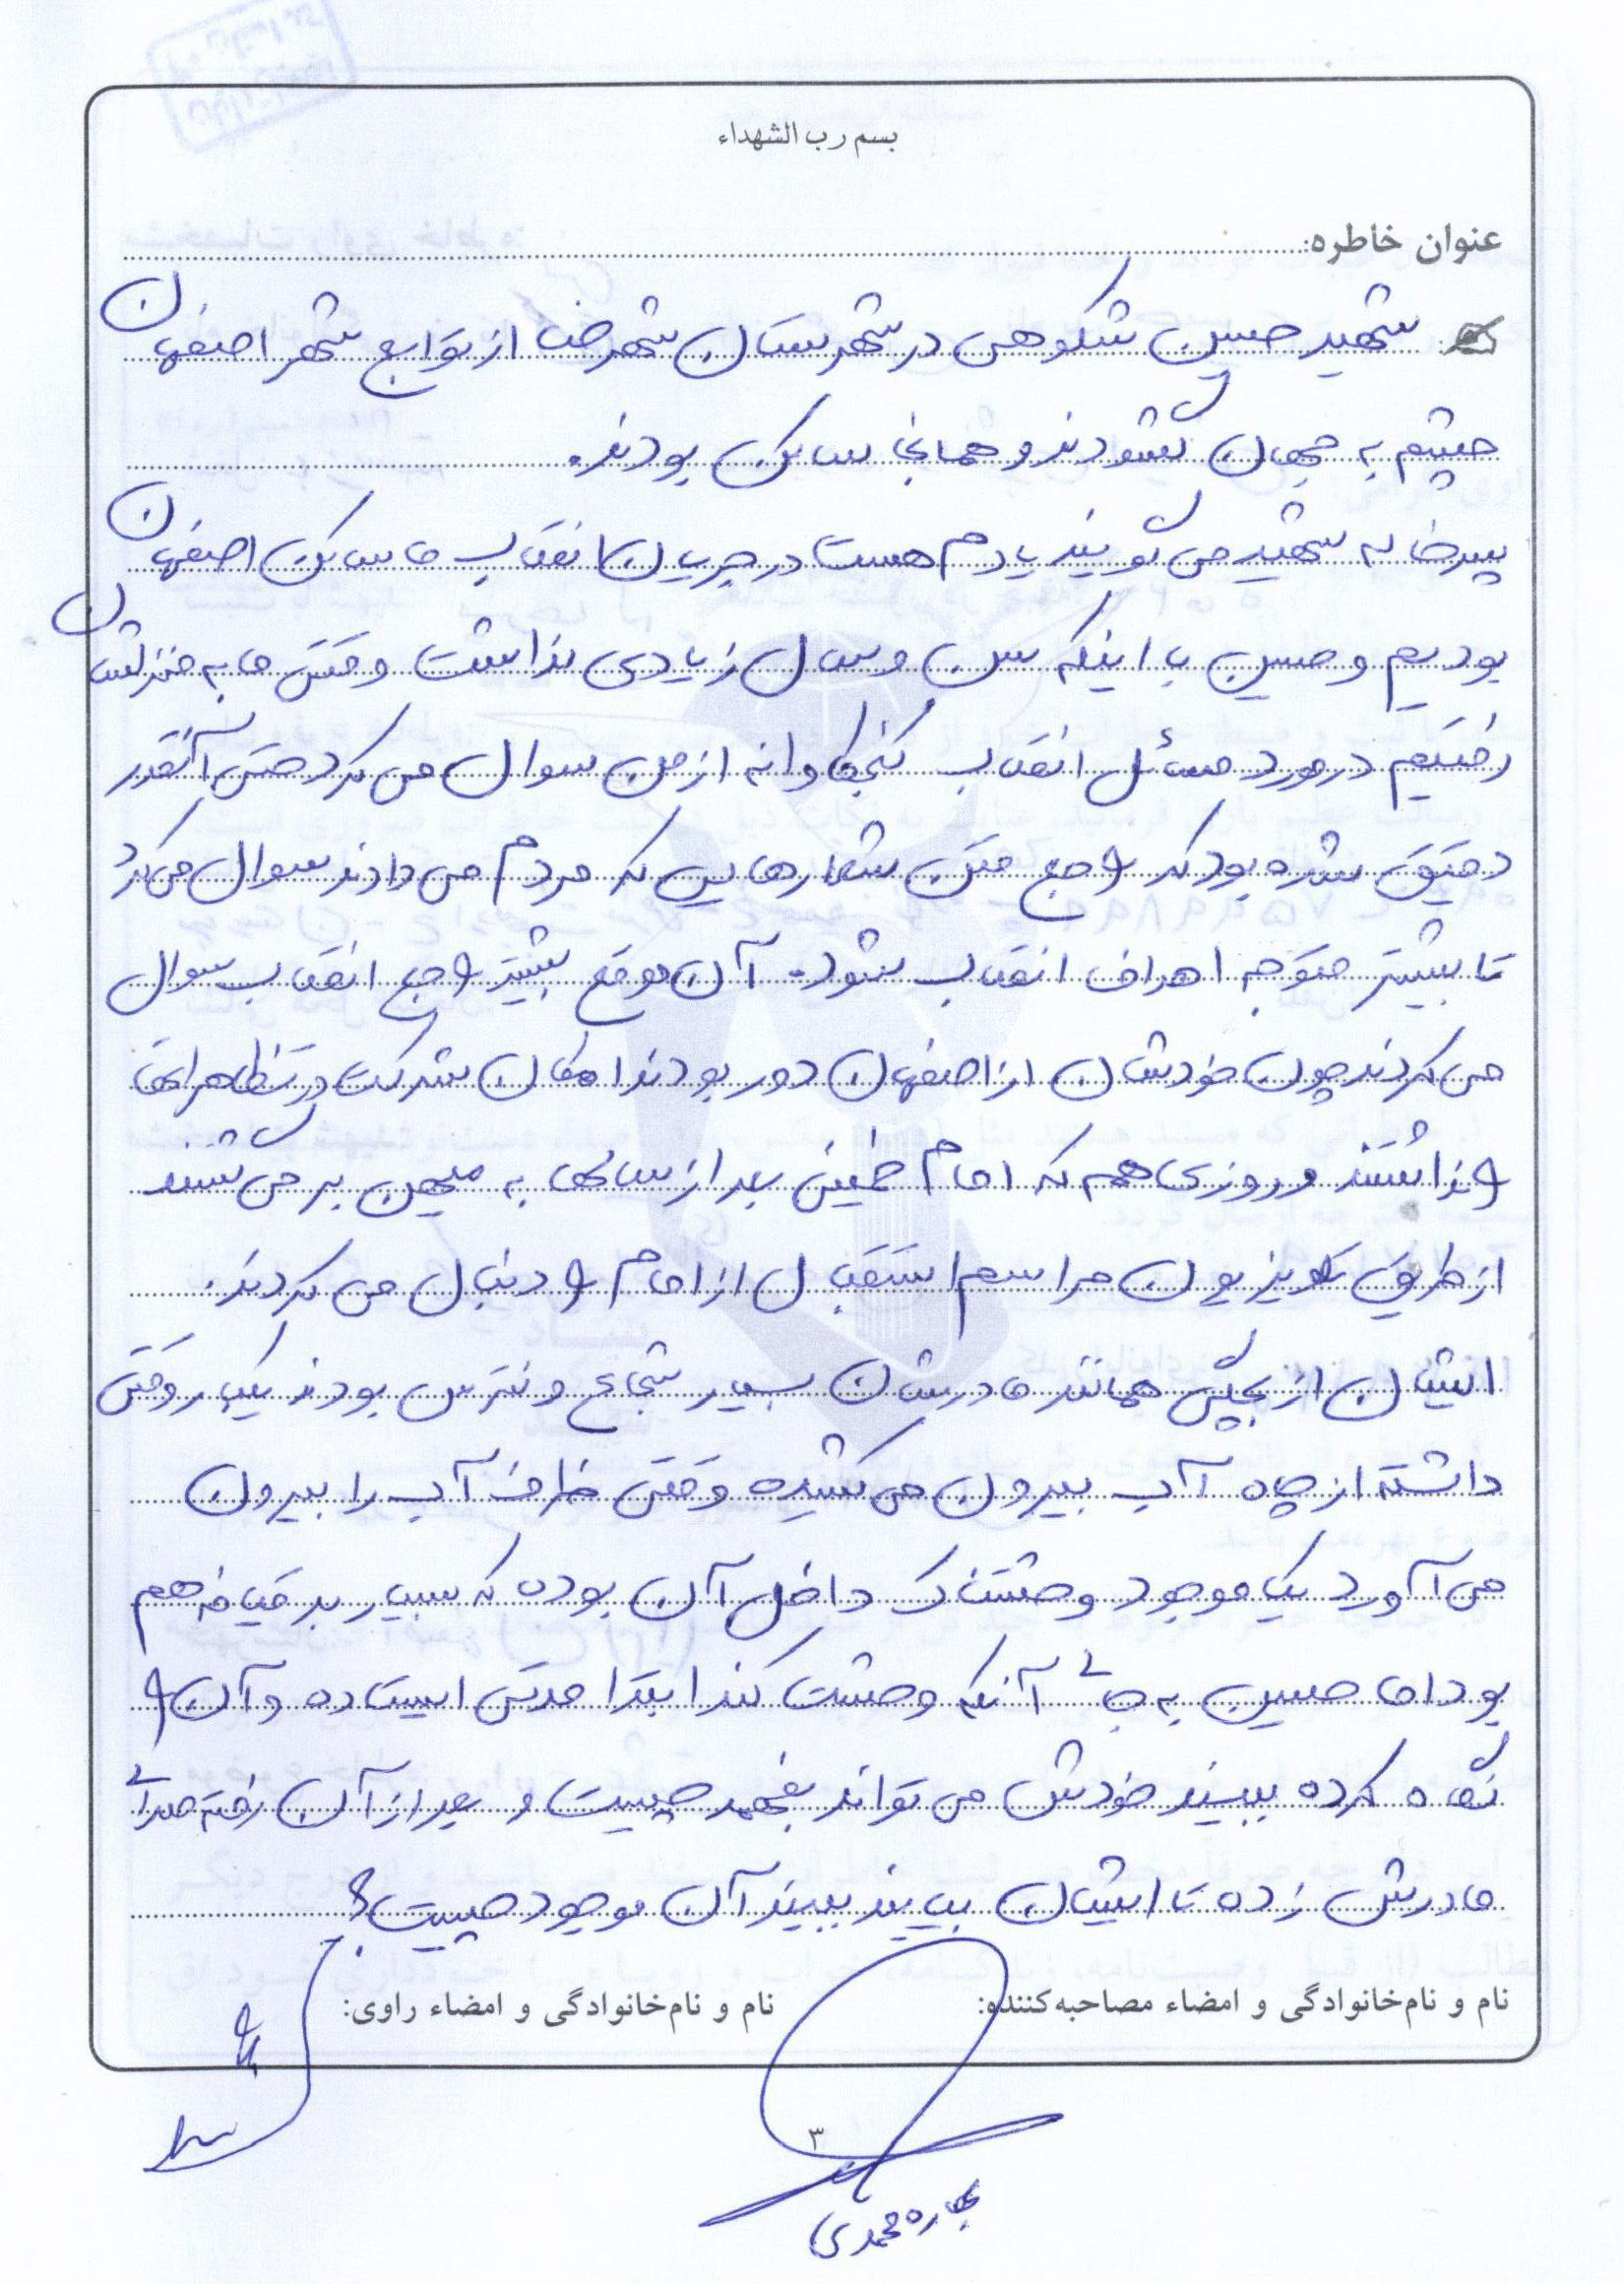 بسم رب الشهداء
عنوان خاطره:
شهید حسین شکوهی در شهرستان شهرضا از توابع شهر اصفهان
چشم به جهان گشودند و همانجا ساکن بودند.
پسرخاله شهید می گویند یادم هست در جریان انقلاب ما ساکن اصفهان
بودیم و حسین با اینکه سن و سال زیادی نداشت وقتی ما به منزلشان
رفتیم در مورد مسائل انقلاب کنجکاوانه از من سوال می کرد حتی آنقدر
دقیق شده بود که راجع متن شعارهایی که مردم می دادند سوال می کرد
تا بیشتر متوجه اهداف انقلاب بشود. آن موقع بیشتر راجع انقلاب سوال
می کردند چون خودشان از اصفهان دور بودند امکان شرکت در تظاهرات
را نداشتند و روزی هم که امام خمینی بعد از سالها به میهن بر می گشتند
از طریق تلویزیون مراسم استقبال از امام را دنبال می کردند.
ایشان از بچگی همانند مادرشان بسیار شجاع و نترس بودند یکبار وقتی
داشته از چاه آب بیرون می کشیده وقتی ظرف آب را بیرون
می آورد یک موجود وحشتناک داخل آن بوده که بسیار بد قیافه هم
بود اما حسین به جای آنکه وحشت کند ابتدا مدتی ایستاده و آن را
نگاه کرده ببیند خودش می تواند بفهمد چیست و بعد از آن رفته صدای
مادرش زده تا ایشان بیایند ببیند آن موجود چیست؟
نام و نام‌خانوادگی و امضاء مصاحبه‌کننده:
نام و نام‌خانوادگی و امضاء راوی:
۳
بهاره محمدی